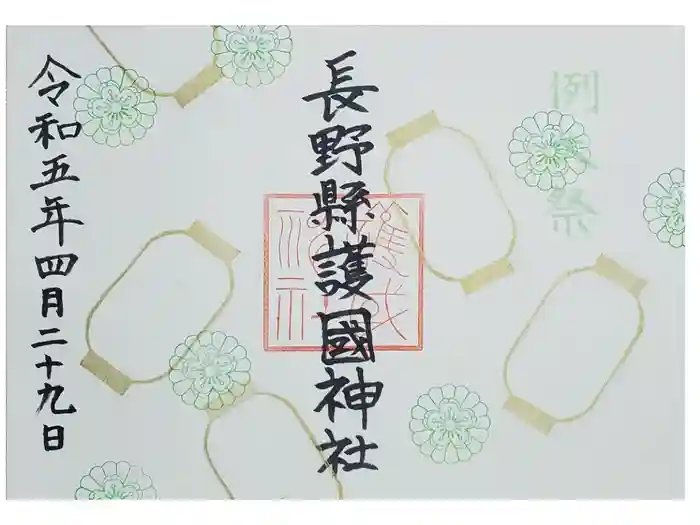 例大祭
長野縣護國神社
令和五年四月二十九日